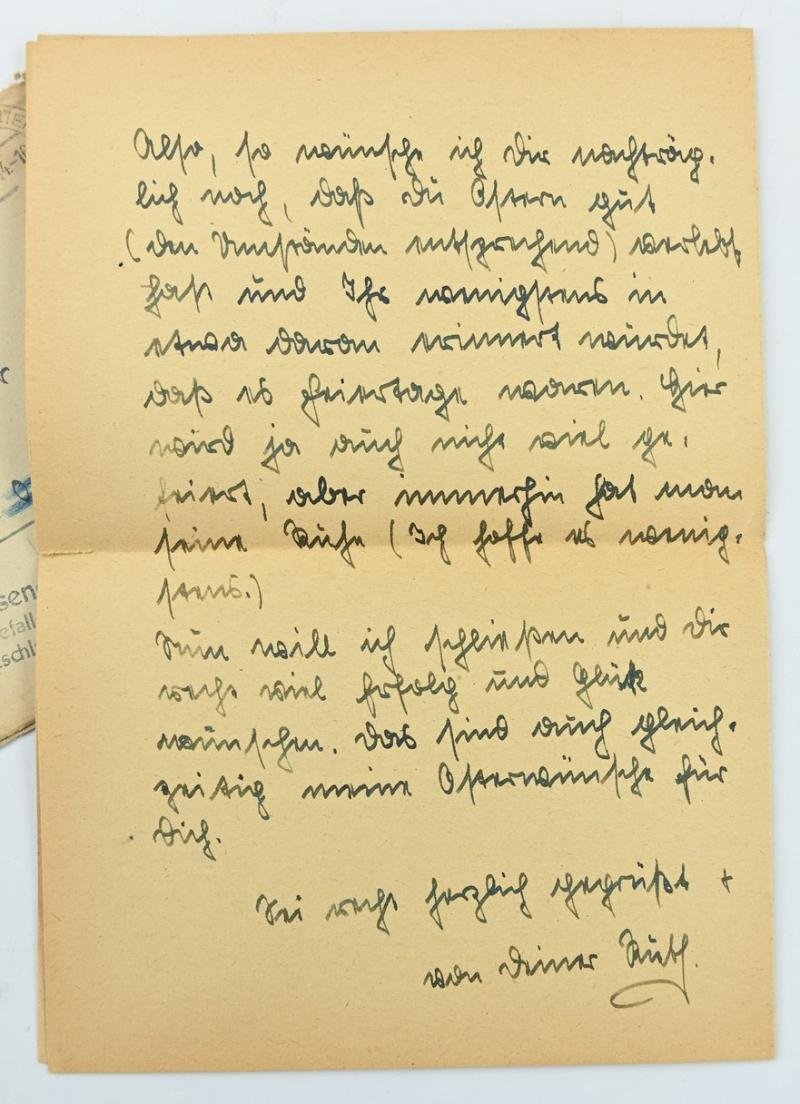 Also, so wünsche ich Dir nachträg-
lich noch, daß Du Ostern gut
(den Umständen entsprechend) verlebt
hast und Ihr wenigstens in
etwa daran erinnert wurdet,
daß es Feiertage waren. Hier
wird ja auch nicht viel ge-
feiert, aber immerhin hat man
seine Ruhe (Ich hoffe es wenig-
stens.)
Nun will ich schließen und Dir
recht viel Erfolg und Glück
wünschen. Das sind auch gleich-
zeitig meine Osterwünsche für
Dich.
Sei recht herzlich gegrüßt +
von Deiner Ruth.